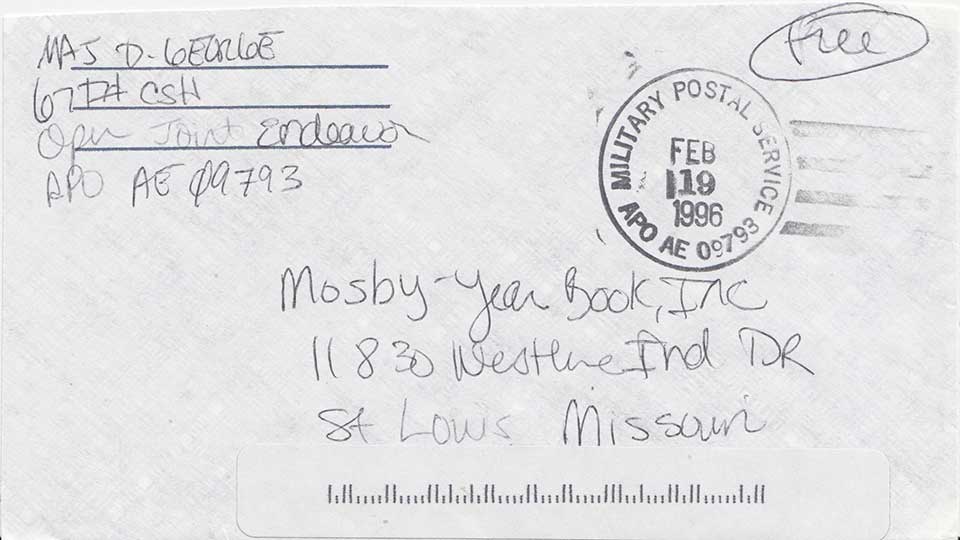 MAJ D. GEORGE
67TH CSH
Oper Joint Endeavor
APO AE 09793
Free
MILITARY POSTAL SERVICE
FEB
19
1996
APO AE 09793
Mosby-Year Book, Inc
11830 Westline Ind DR
St Louis Missouri